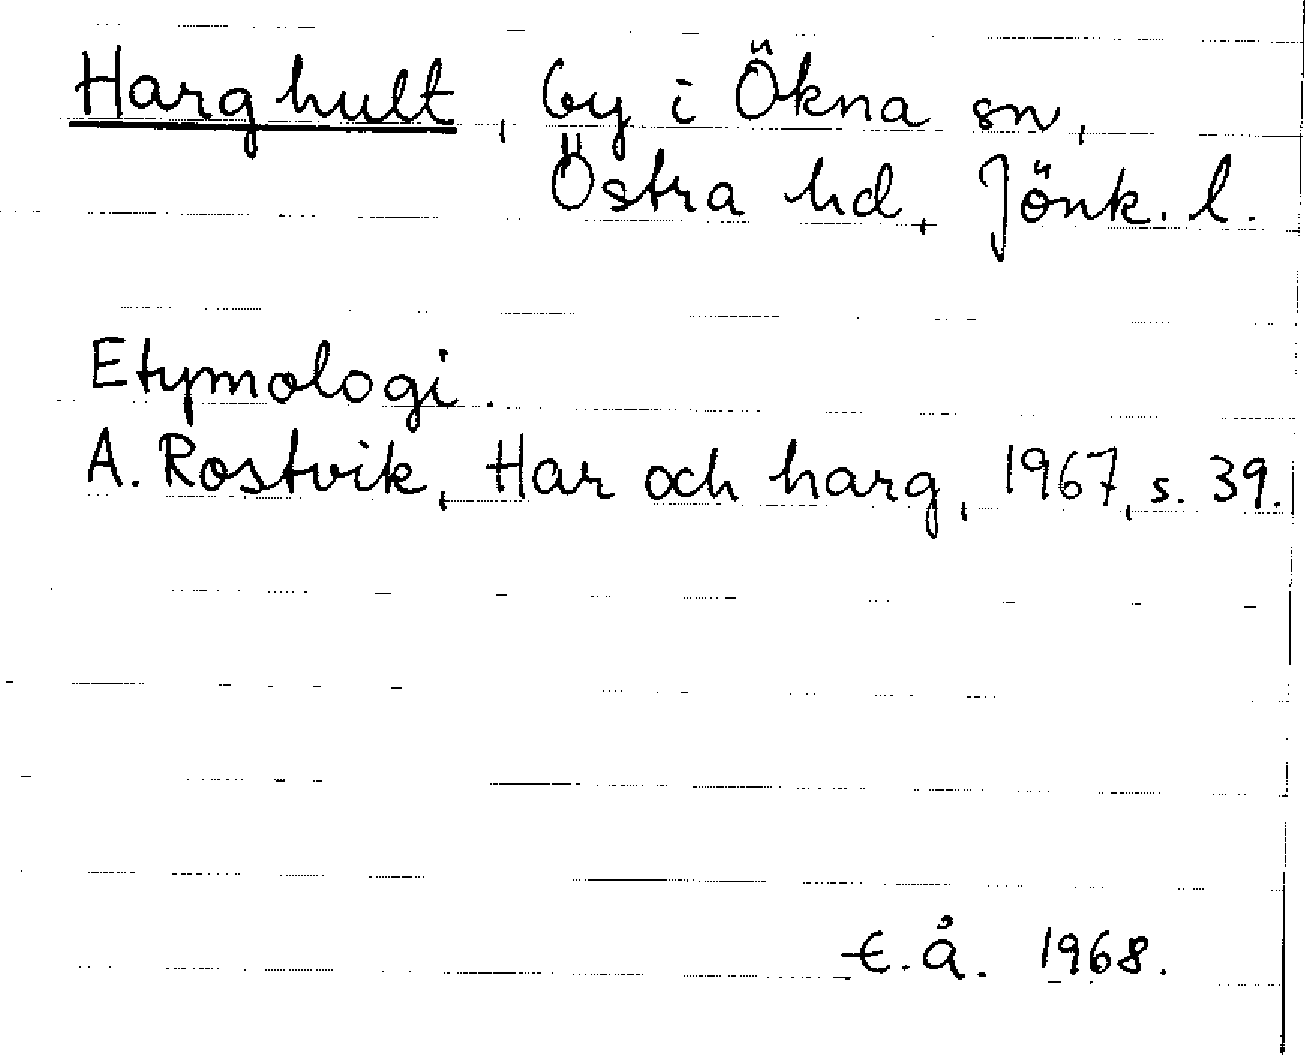 Harghult, by i Ökna sn,
Östra hd, Jönk. l.
Etymologi.
A. Rostvik, Har och harg, 1967, s. 39.
E.Å. 1968.